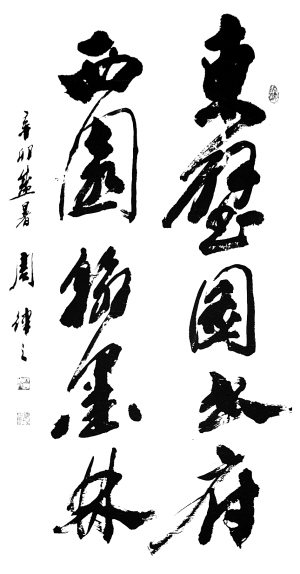 東壁圖書府
西園翰墨林
辛卯盛暑 周律之